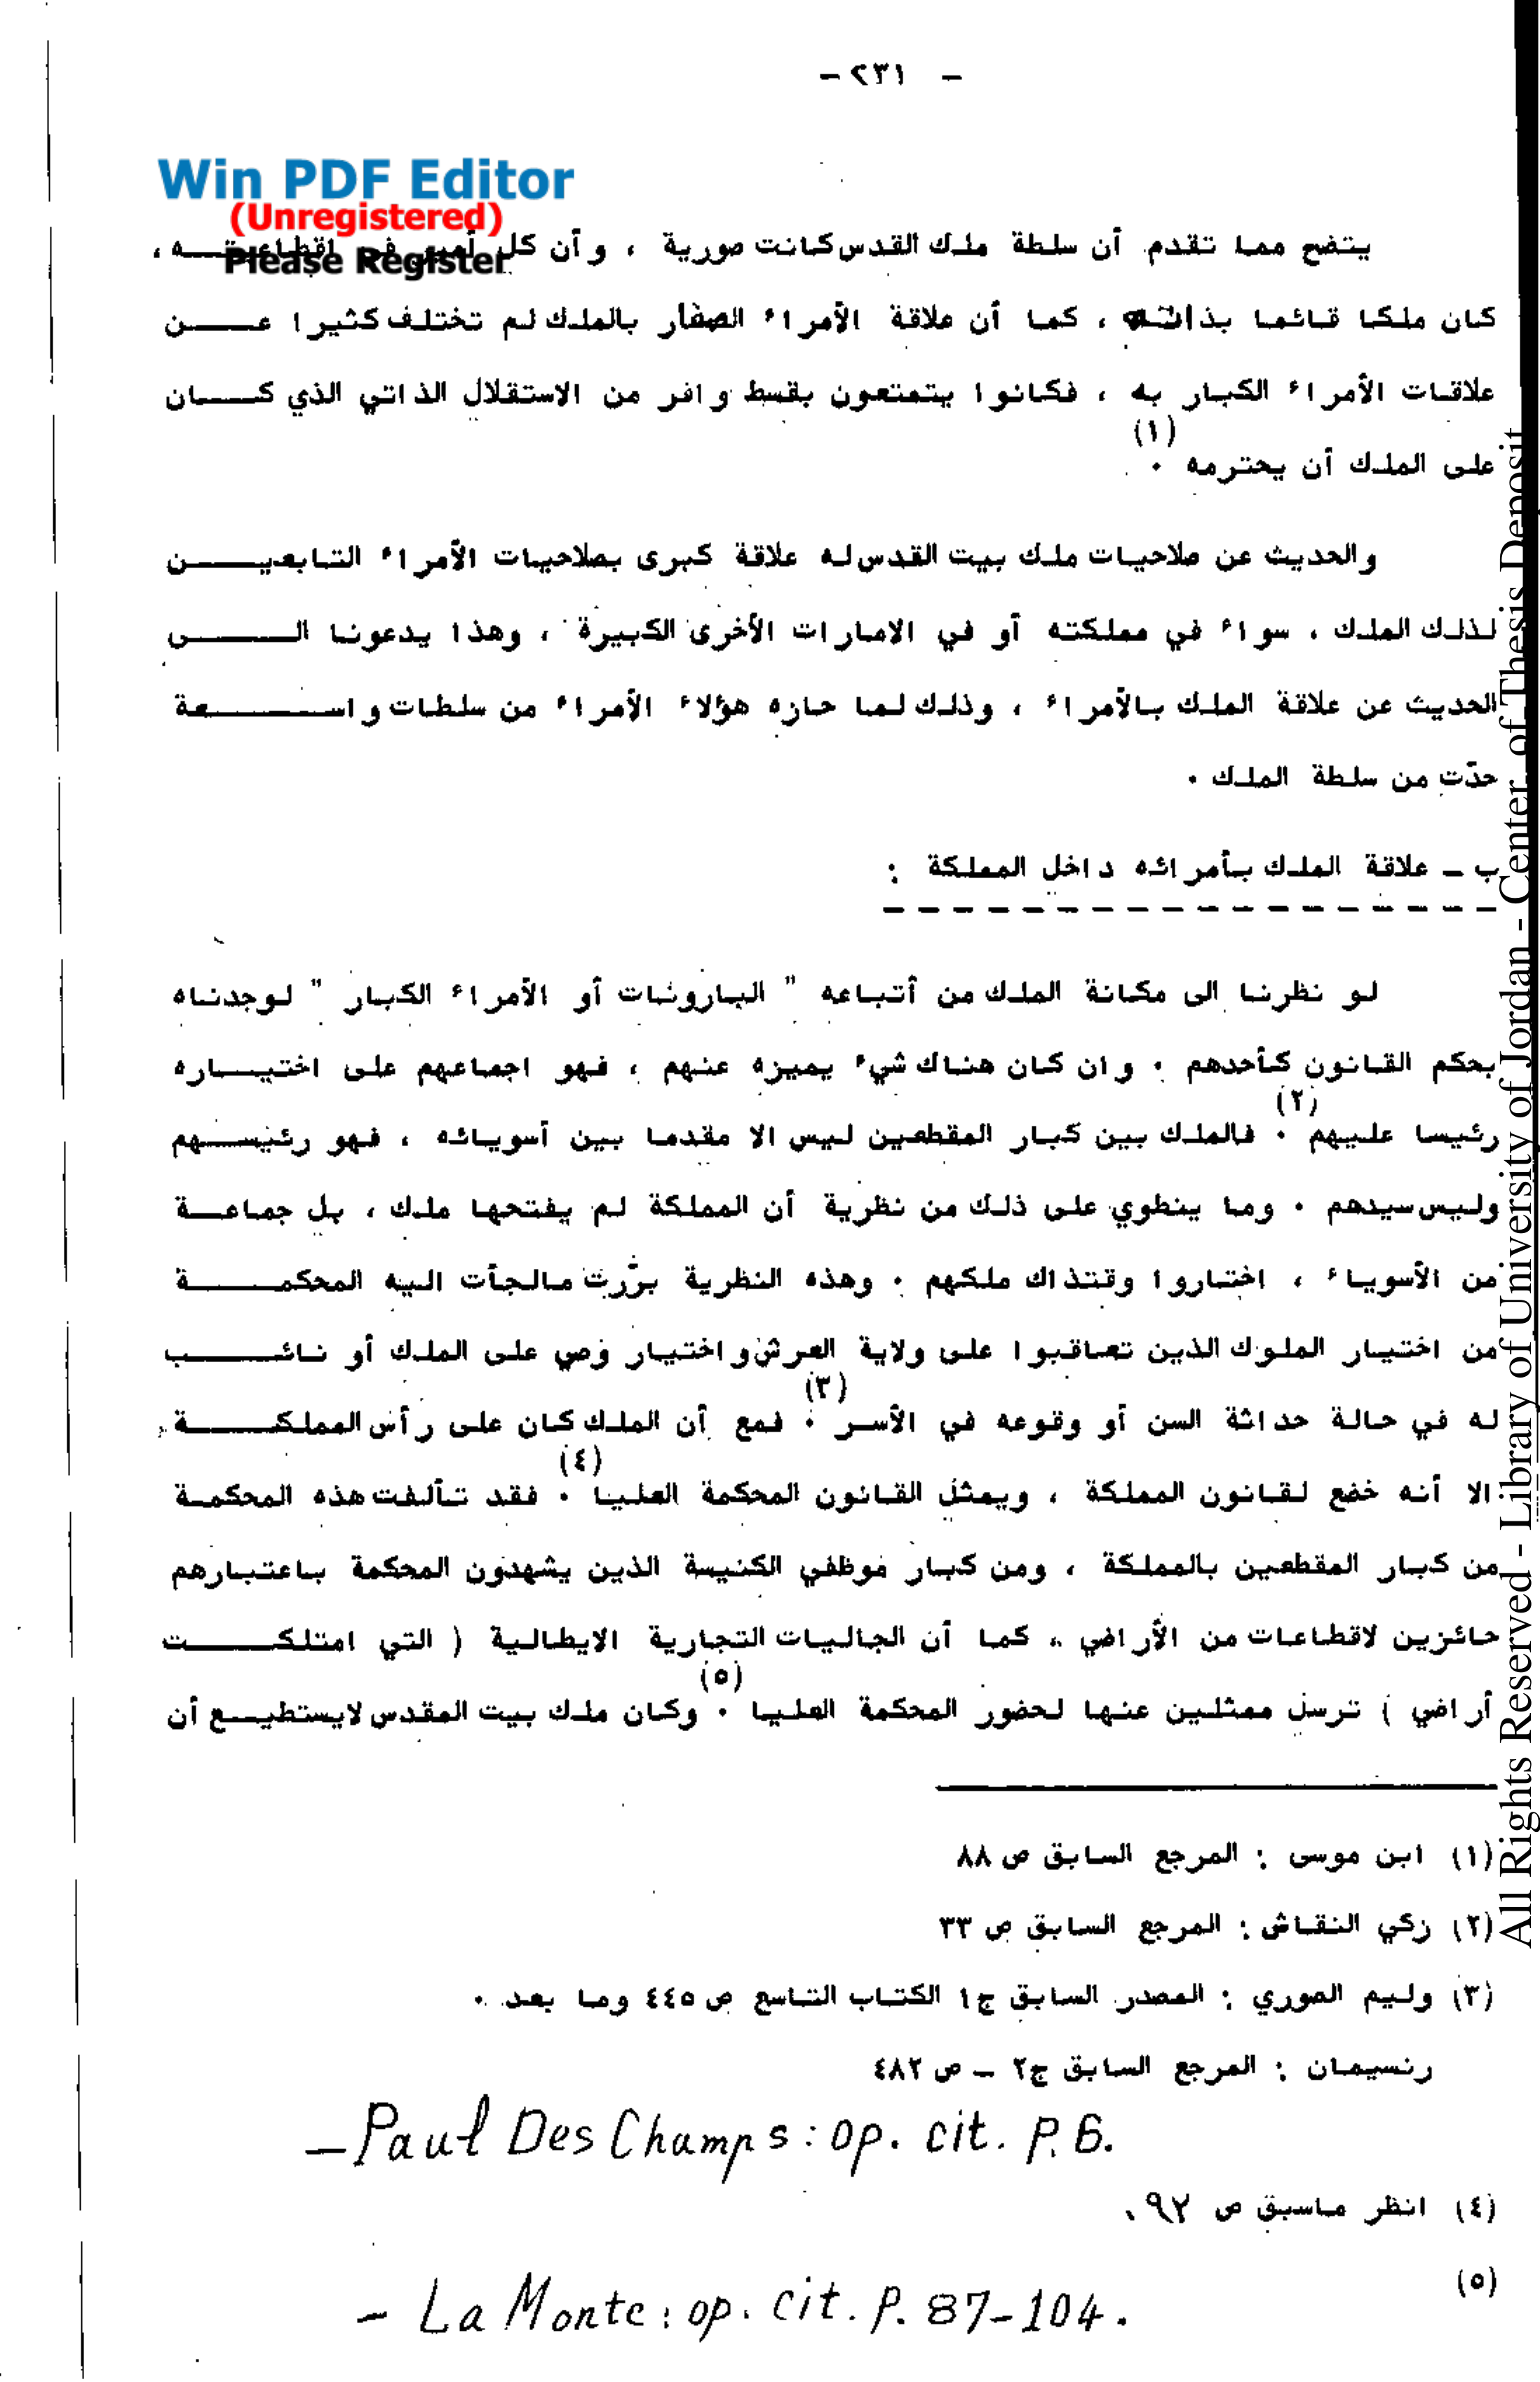 - ٢٣١ -
Win PDF Editor
(Unregistered)
Please Register
يتضح مما تقدم أن سلطة ملك القدس كانت صورية ، وأن كل أمير في اقطاعيته ،
كان ملكا قائما بذاته ، كما أن علاقة الأمراء الصغار بالملك لم تختلف كثيرا عن
علاقات الأمراء الكبار به ، فكانوا يتمتعون بقسط وافر من الاستقلال الذاتي الذي كان
على الملك أن يحترمه (١) .
والحديث عن صلاحيات ملك بيت القدس له علاقة كبرى بصلاحيات الأمراء التابعين
لذلك الملك ، سواء في مملكته أو في الامارات الأخرى الكبيرة ، وهذا يدعونا الى
الحديث عن علاقة الملك بالأمراء ، وذلك لما حازه هؤلاء الأمراء من سلطات واسعة
حدّت من سلطة الملك .
ب - علاقة الملك بأمرائه داخل المملكة :
لو نظرنا الى مكانة الملك من أتباعه " البارونات أو الأمراء الكبار " لوجدناه
بحكم القانون كأحدهم . وان كان هناك شيء يميزه عنهم ، فهو اجماعهم على اختياره
رئيسا عليهم (٢) . فالملك بين كبار المقطعين ليس الا مقدما بين أسويائه ، فهو رئيسهم
وليس سيدهم . وما ينطوي على ذلك من نظرية أن المملكة لم يفتحها ملك ، بل جماعة
من الأسوياء ، اختاروا وقتذاك ملكهم . وهذه النظرية برّرت مالجأت اليه المحكمة
من اختيار الملوك الذين تعاقبوا على ولاية العرش واختيار وصي على الملك أو نائب
له في حالة حداثة السن أو وقوعه في الأسر (٣) . فمع أن الملك كان على رأس المملكة ،
الا أنه خضع لقانون المملكة ، ويمثل القانون المحكمة العليا (٤) . فقد تألفت هذه المحكمة
من كبار المقطعين بالمملكة ، ومن كبار موظفي الكنيسة الذين يشهدون المحكمة باعتبارهم
حائزين لاقطاعات من الأراضي ، كما أن الجاليات التجارية الايطالية ( التي امتلكت
أراضي ) ترسل ممثلين عنها لحضور المحكمة العليا (٥) . وكان ملك بيت المقدس لايستطيع أن
(١) ابن موسى : المرجع السابق ص ٨٨
(٢) زكي النقاش : المرجع السابق ص ٣٣
(٣) وليم الصوري : المصدر السابق ج١ الكتاب التاسع ص ٤٤٥ وما بعد .
رنسيمان : المرجع السابق ج٢ - ص ٤٨٢
- Paul Des Champs : op. cit. P. 6.
(٤) انظر ماسبق ص ٩٢ .
(٥)
- La Monte : op. cit. P. 87-104.
All Rights Reserved - Library of University of Jordan - Center of Thesis Deposit